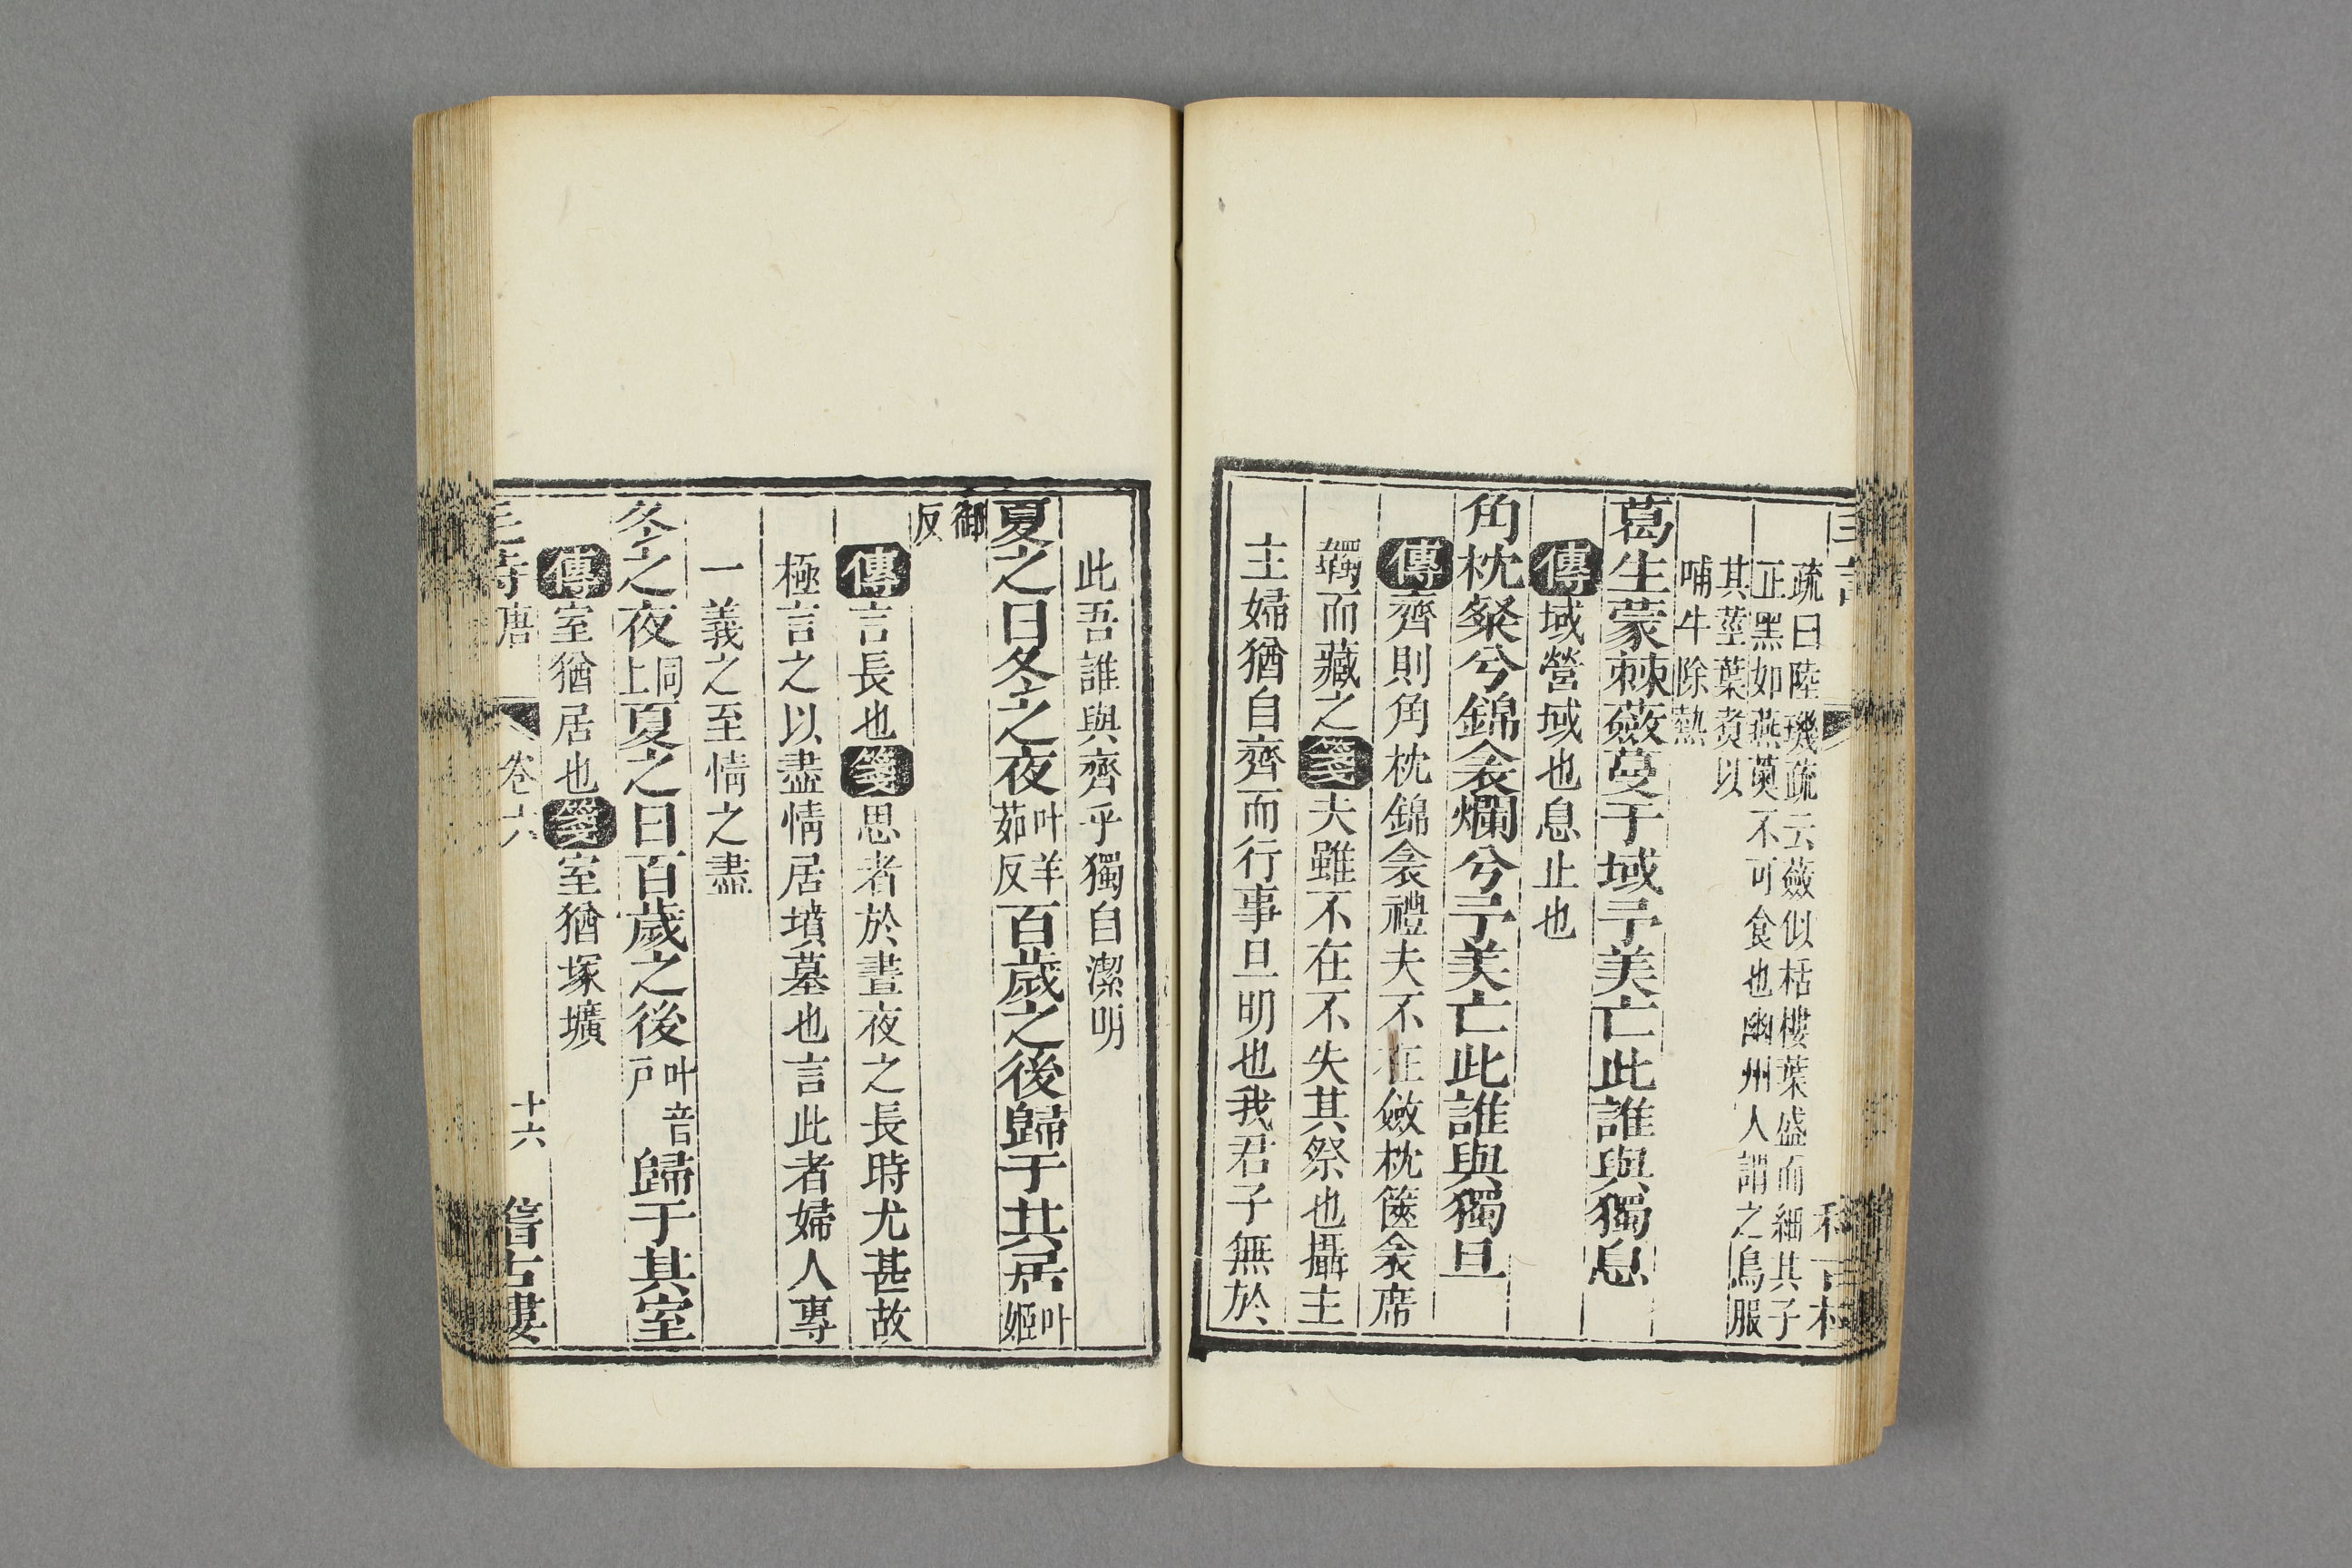 疏曰陸璣疏云蘞似栝樓葉盛而細其子
正黑如燕薁不可食也幽州人謂之烏服
其莖葉煑以
哺牛除熱
葛生蒙棘蘞蔓于域予美亡此誰與獨息
傳域營域也息止也
角枕粲兮錦衾爛兮予美亡此誰與獨旦
傳齊則角枕錦衾禮夫不在斂枕篋衾席
韣而藏之箋夫雖不在不失其祭也攝主
主婦猶自齊而行事旦明也我君子無於
此吾誰與齊乎獨自潔明
夏之日冬之夜叶羊茹反百歲之後歸于其居叶姬
御反
傳言長也箋思者於晝夜之長時尤甚故
極言之以盡情居墳墓也言此者婦人專
一義之至情之盡
冬之夜同上夏之日百歲之後叶音戶歸于其室
傳室猶居也箋室猶塚壙
毛詩唐 卷六 十六 稽古樓